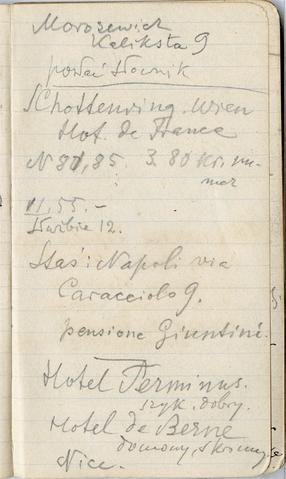 Morozewicz
Keliksta 9
posłać słownik
Schottenring. Wien
Hot. de France
N 81, 85. 3.80 Kr. nu-
mer
11,55.-
12.
Staś: Napoli via
Caracciolo 9.
pensione Giuntini.
Hotel Terminus.
szyk. dobry.
Hotel de Berne
domowy,
Nice.